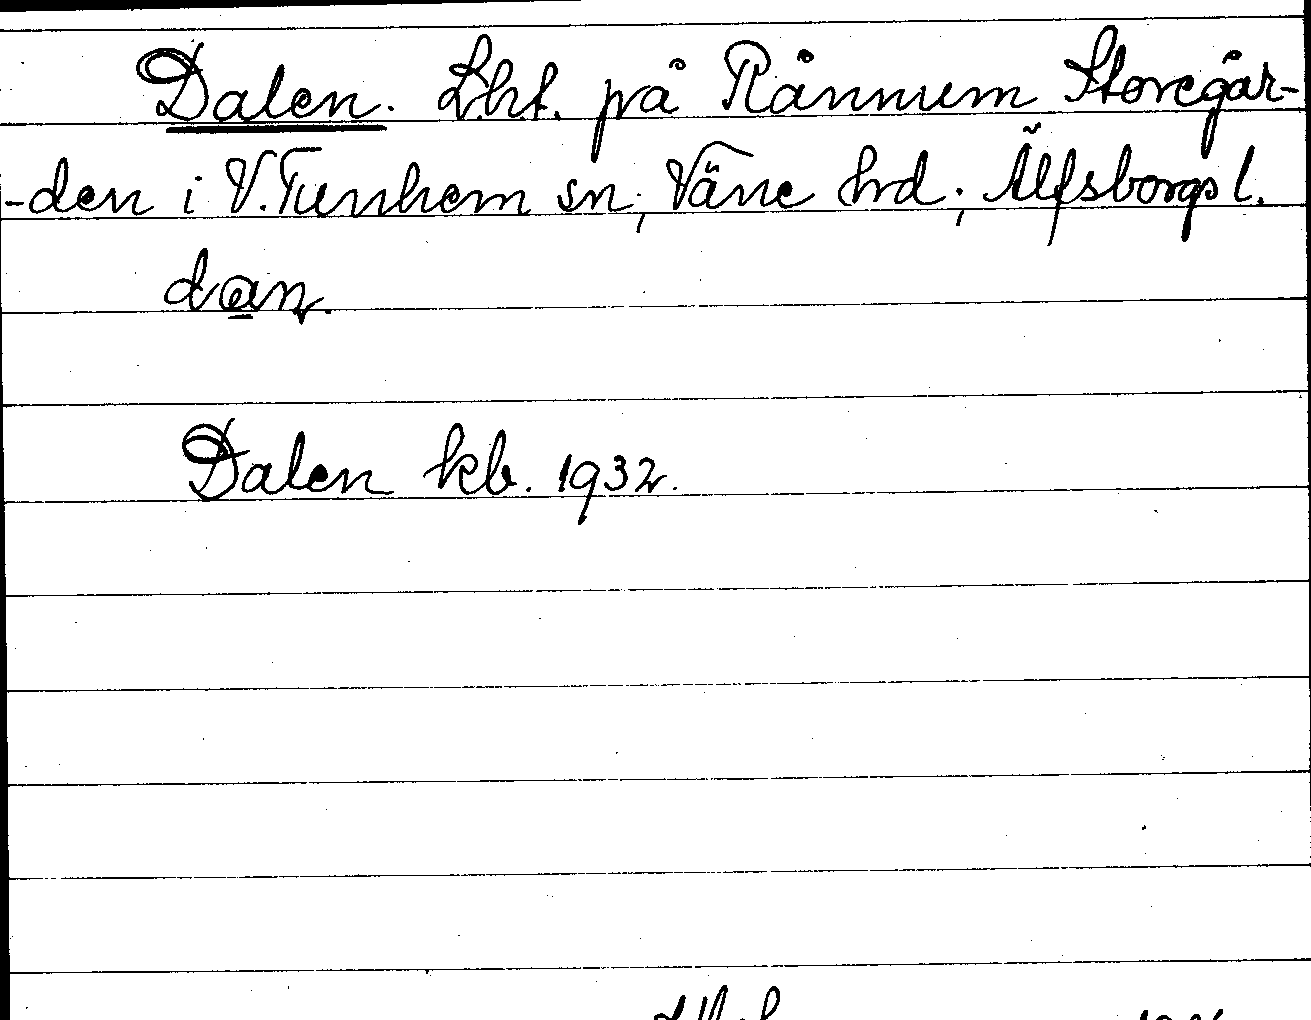 Dalen. Lht. på Rånnum Storegår-
-den i V. Tunhem sn; Väne hrd; Älfsborgs l.
dan.
Dalen kb. 1932.